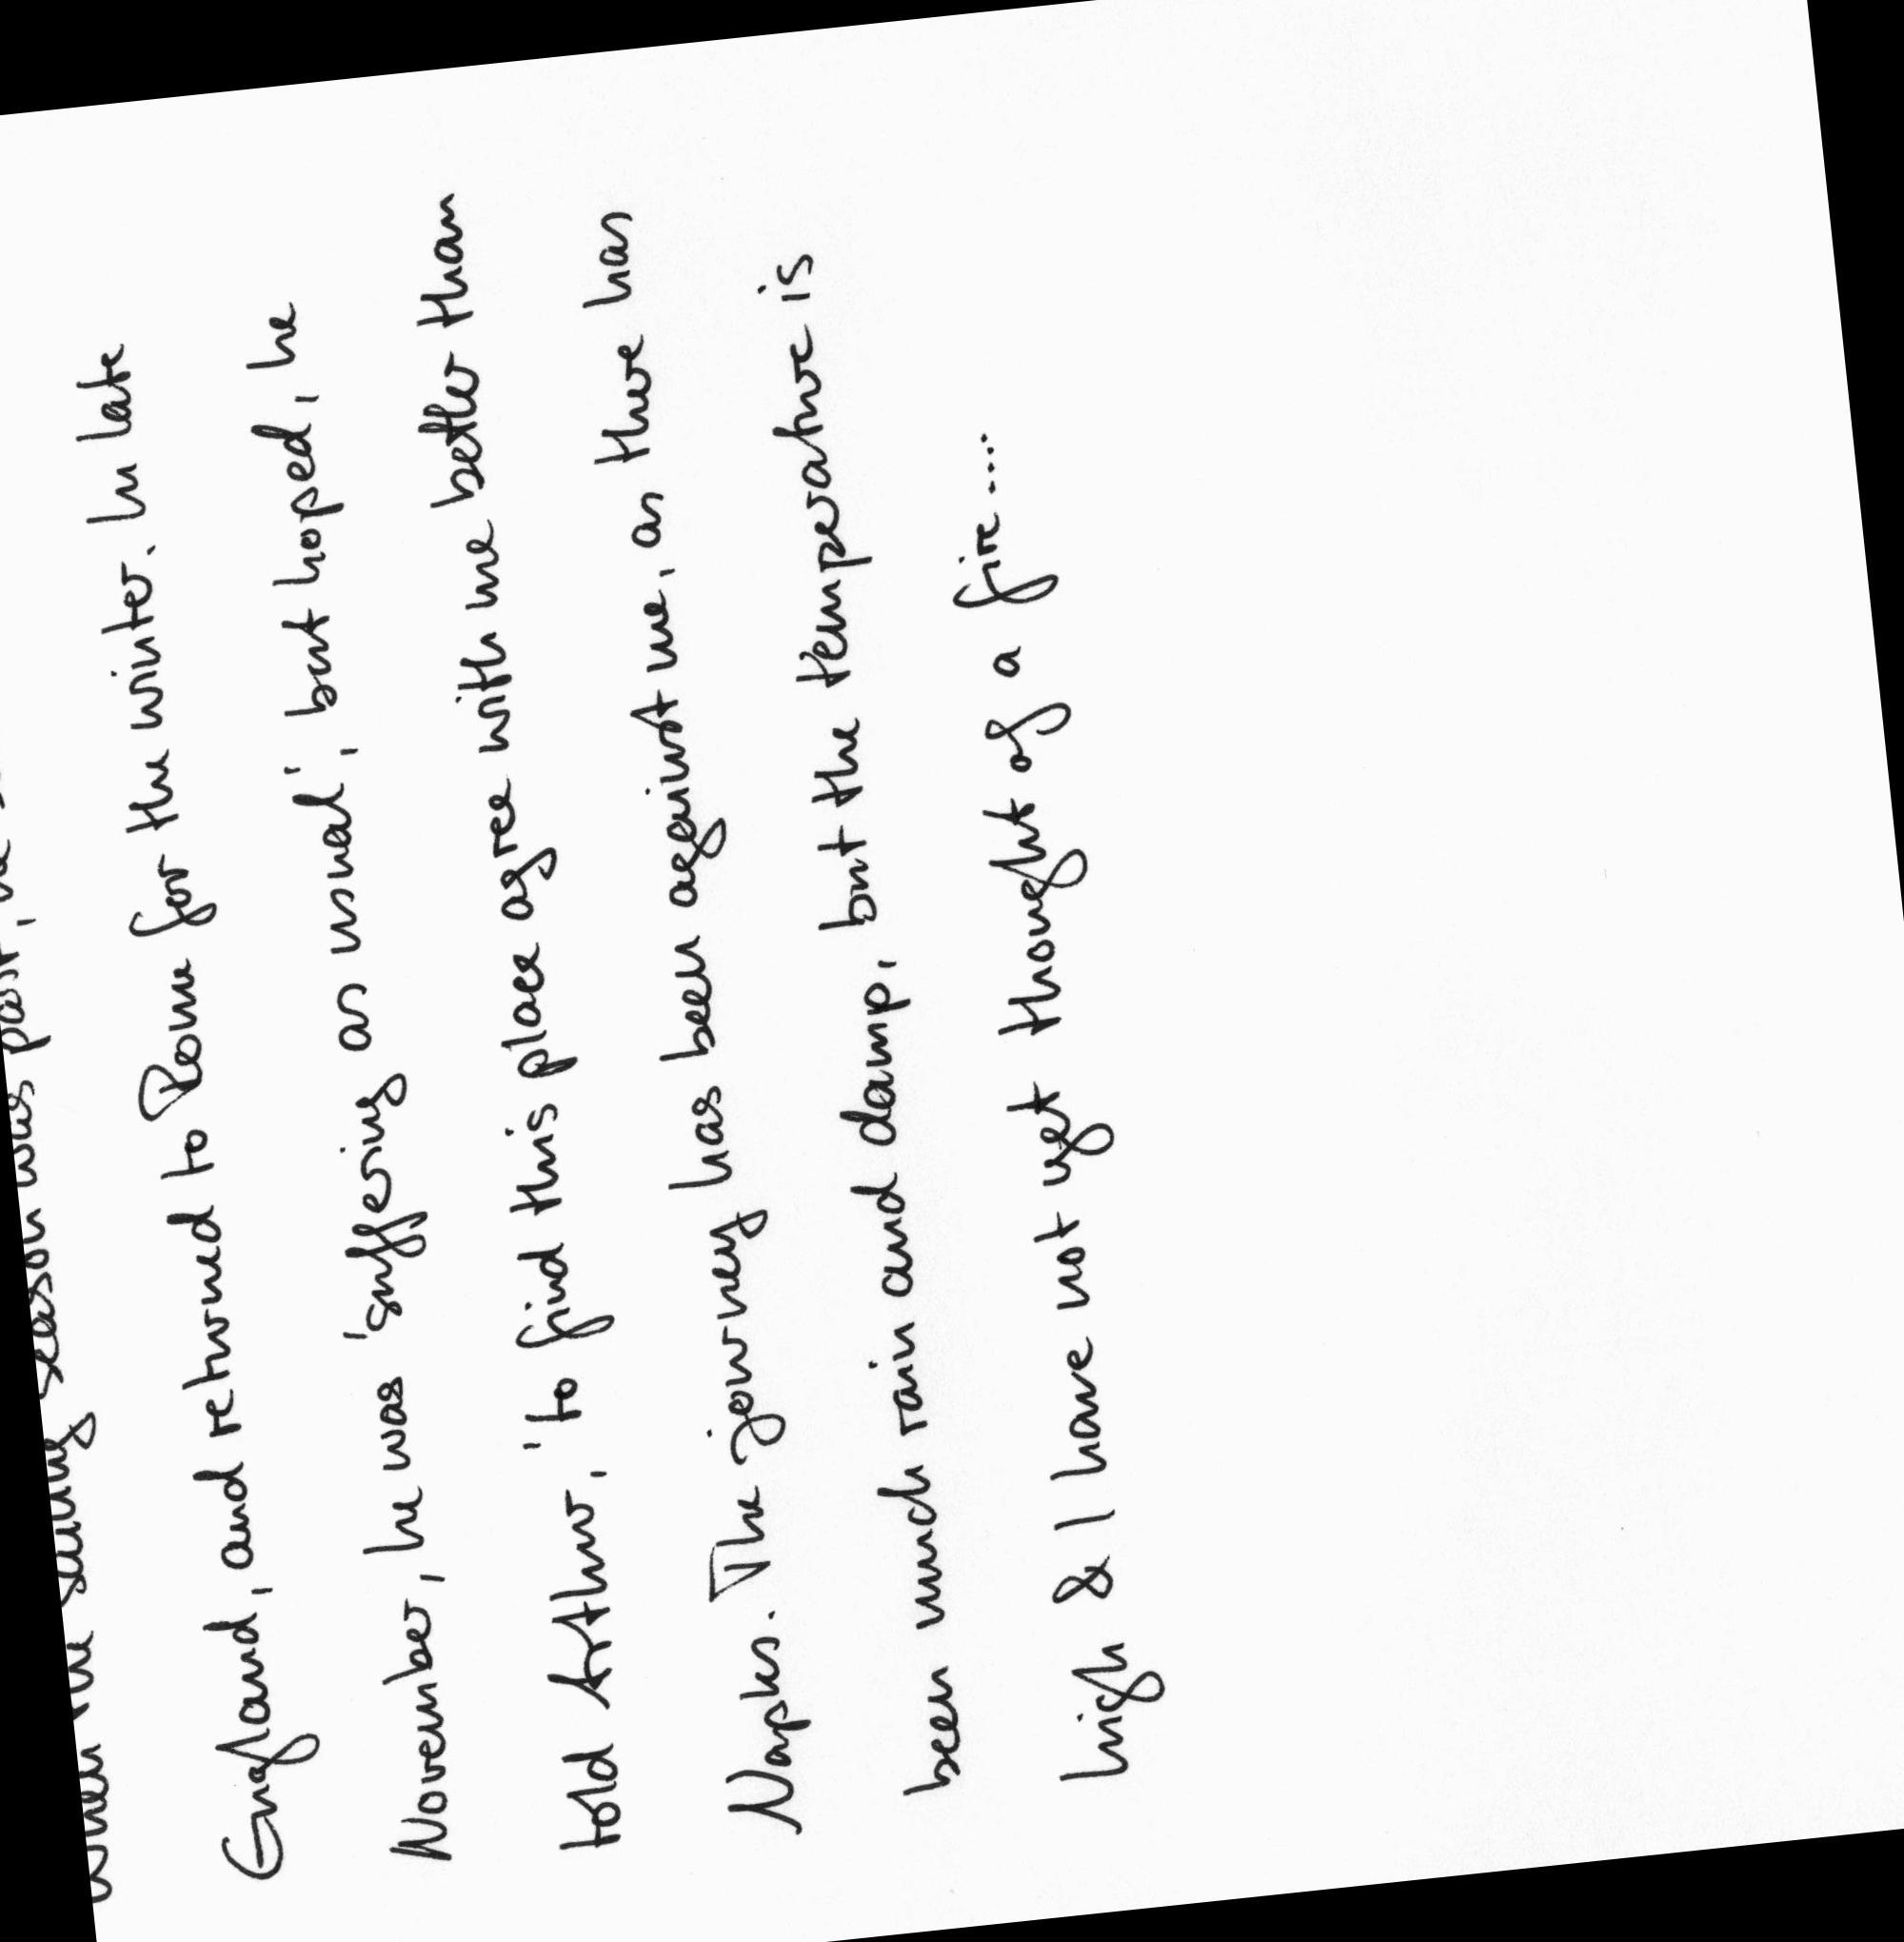 when the sailing season was past, he
England, and returned to Rome for the winter. In late
November, he was 'suffering as usual', but hoped, he
told Arthur, 'to find this place agree with me better than
Naples. The journey has been against me, as there has
been much rain and damp, but the temperature is
high & I have not yet thought of a fire....